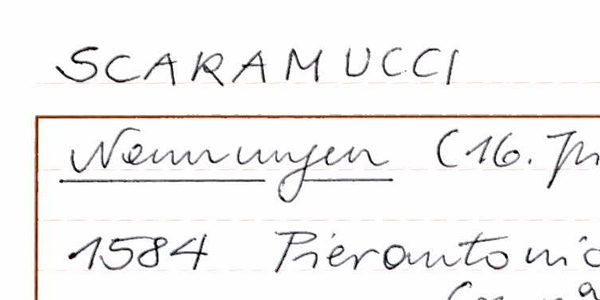 SCARAMUCCI
Nennungen (16. Jh
1584 Pierantonio